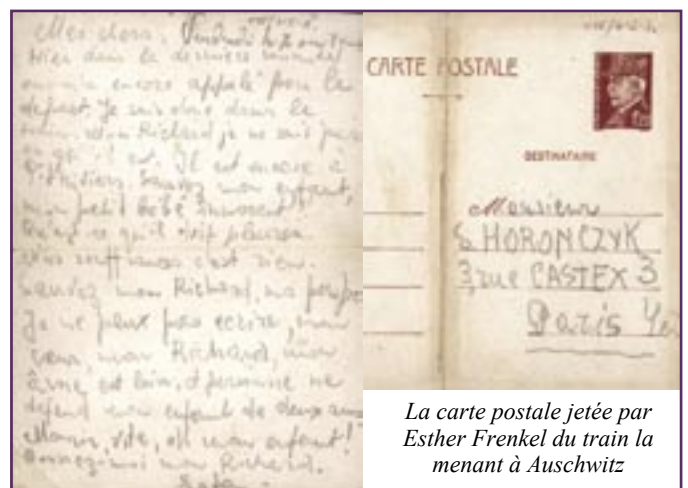 Mes chers. Vendredi le 7 août
Hier dans la dernière minute
encore appelé pour le
départ. Je suis donc dans le
train. Mon Richard je ne sais pas
où il est. Il est encore à
Pithiviers. Sauvez mon enfant,
mon petit bébé innocent!
ce qu'il doit pleurer
souffrances c'est rien.
Sauvez mon Richard, ma
Je ne peux pas ecrire, mon
coeur, mon Richard, mon
âme est loin, et personne ne
défend mon enfant de deux ans
Mourir, vite, oh mon enfant!
Donnez-moi mon Richard.
CARTE POSTALE
DESTINATAIRE
Monsieur
HORONCZYK
3, rue CASTEX 3
Paris
La carte postale jetée par
Esther Frenkel du train la
menant à Auschwitz